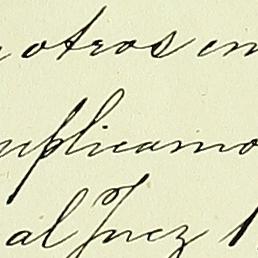 otros en
uplicamo
al Juez